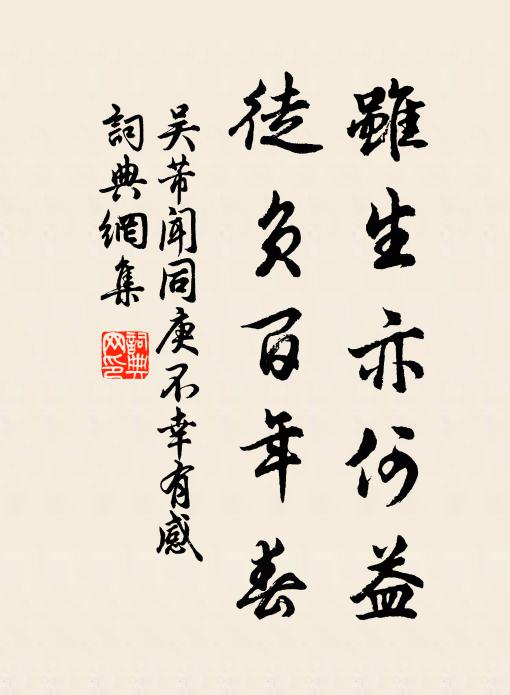 雖生亦何益
徒負百年春
吳芾聞同庚不幸有感
詞典網集
詞典
网印